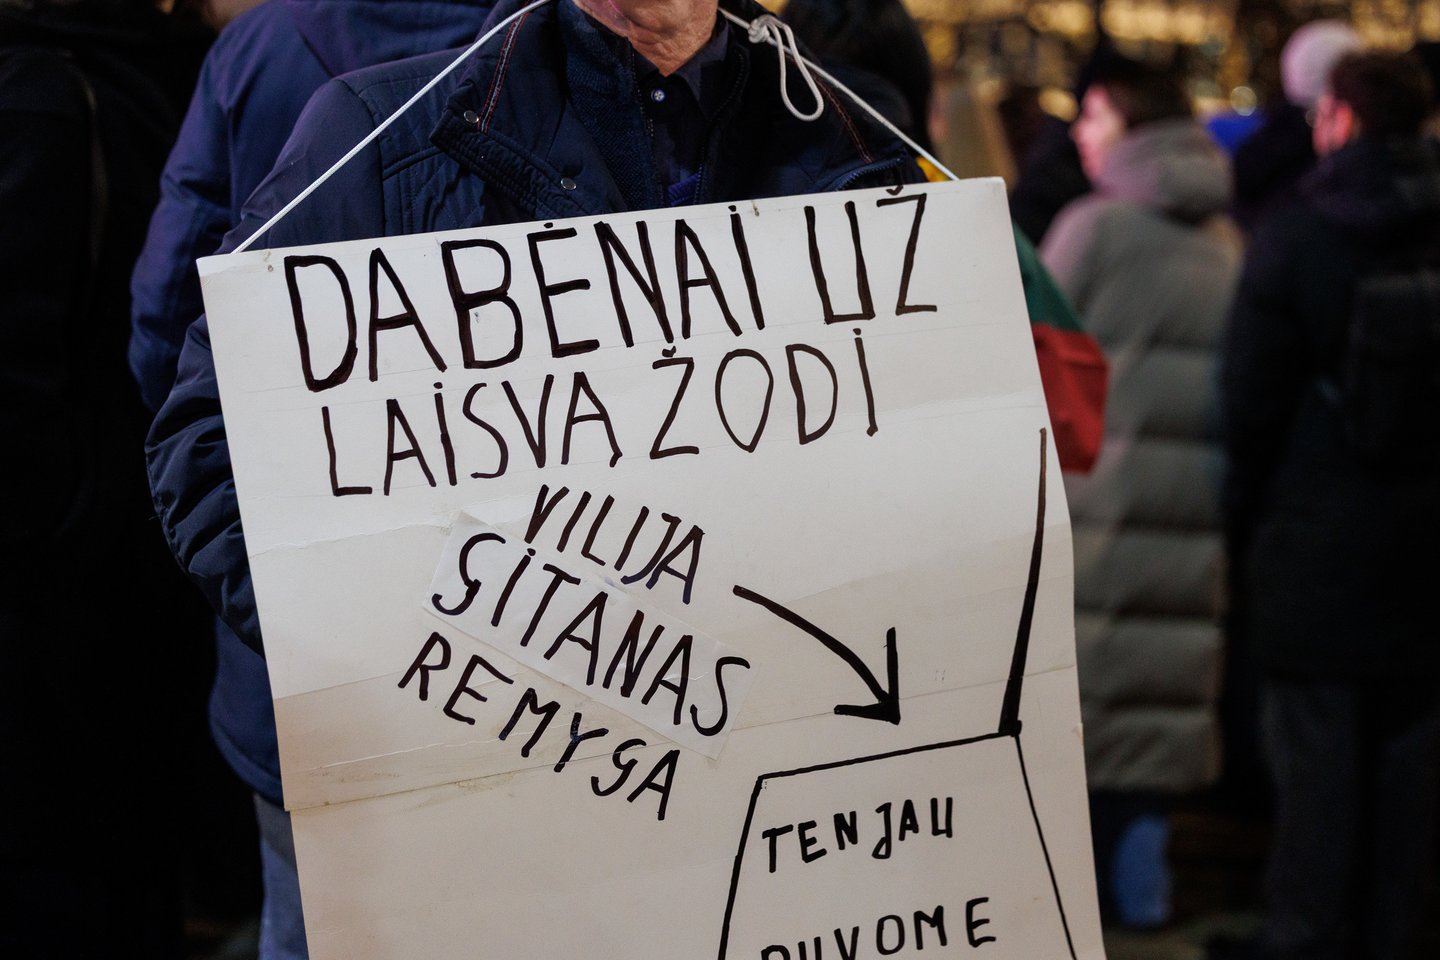 DABĖNAI UŽ
LAISVĄ ŽODĮ
VILIJA
GITANAS
REMYGA
TEN JAU
BUVOME